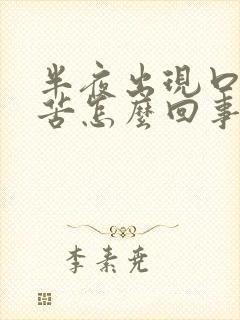 半夜出現口
苦怎麼回事
李素堯